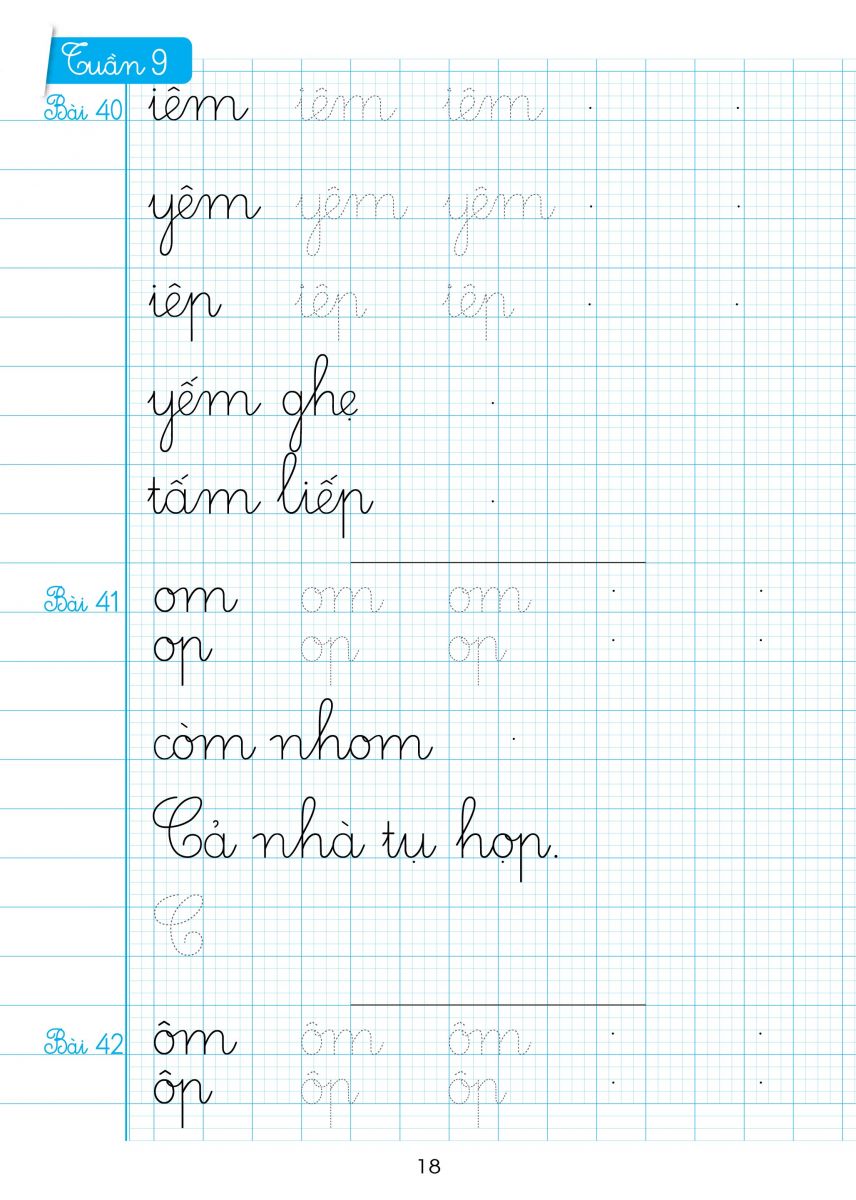 Tuần 9
Bài 40 iêm iêm iêm
yêm yêm yêm
iêp iêp iêp
yếm ghẹ
tấm liếp
Bài 41 om om om
op op op
còm nhom
Cả nhà tụ họp.
C
Bài 42 ôm ôm ôm
ôp ôp ôp
18